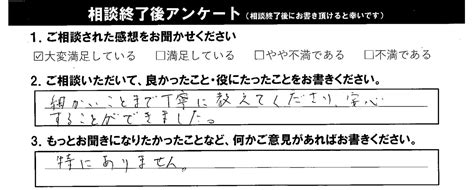 相談終了後アンケート（相談終了後にお書き頂けると幸いです）
1. ご相談された感想をお聞かせください
☑大変満足している　□満足している　□やや不満である　□不満である
2. ご相談いただいて、良かったこと・役にたったことをお書きください。
細かいことまで丁寧に教えてくださり、安心
することができました。
3. もっとお聞きになりたかったことなど、何かご意見があればお書きください。
特にありません。